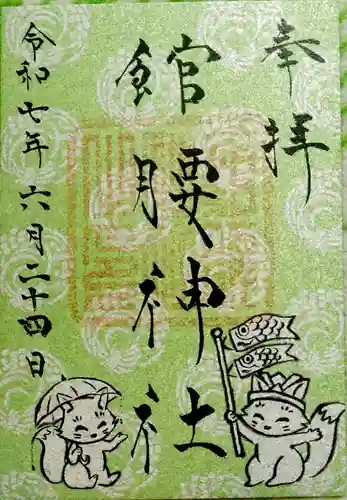 奉拝
館腰神社
令和七年六月二十四日